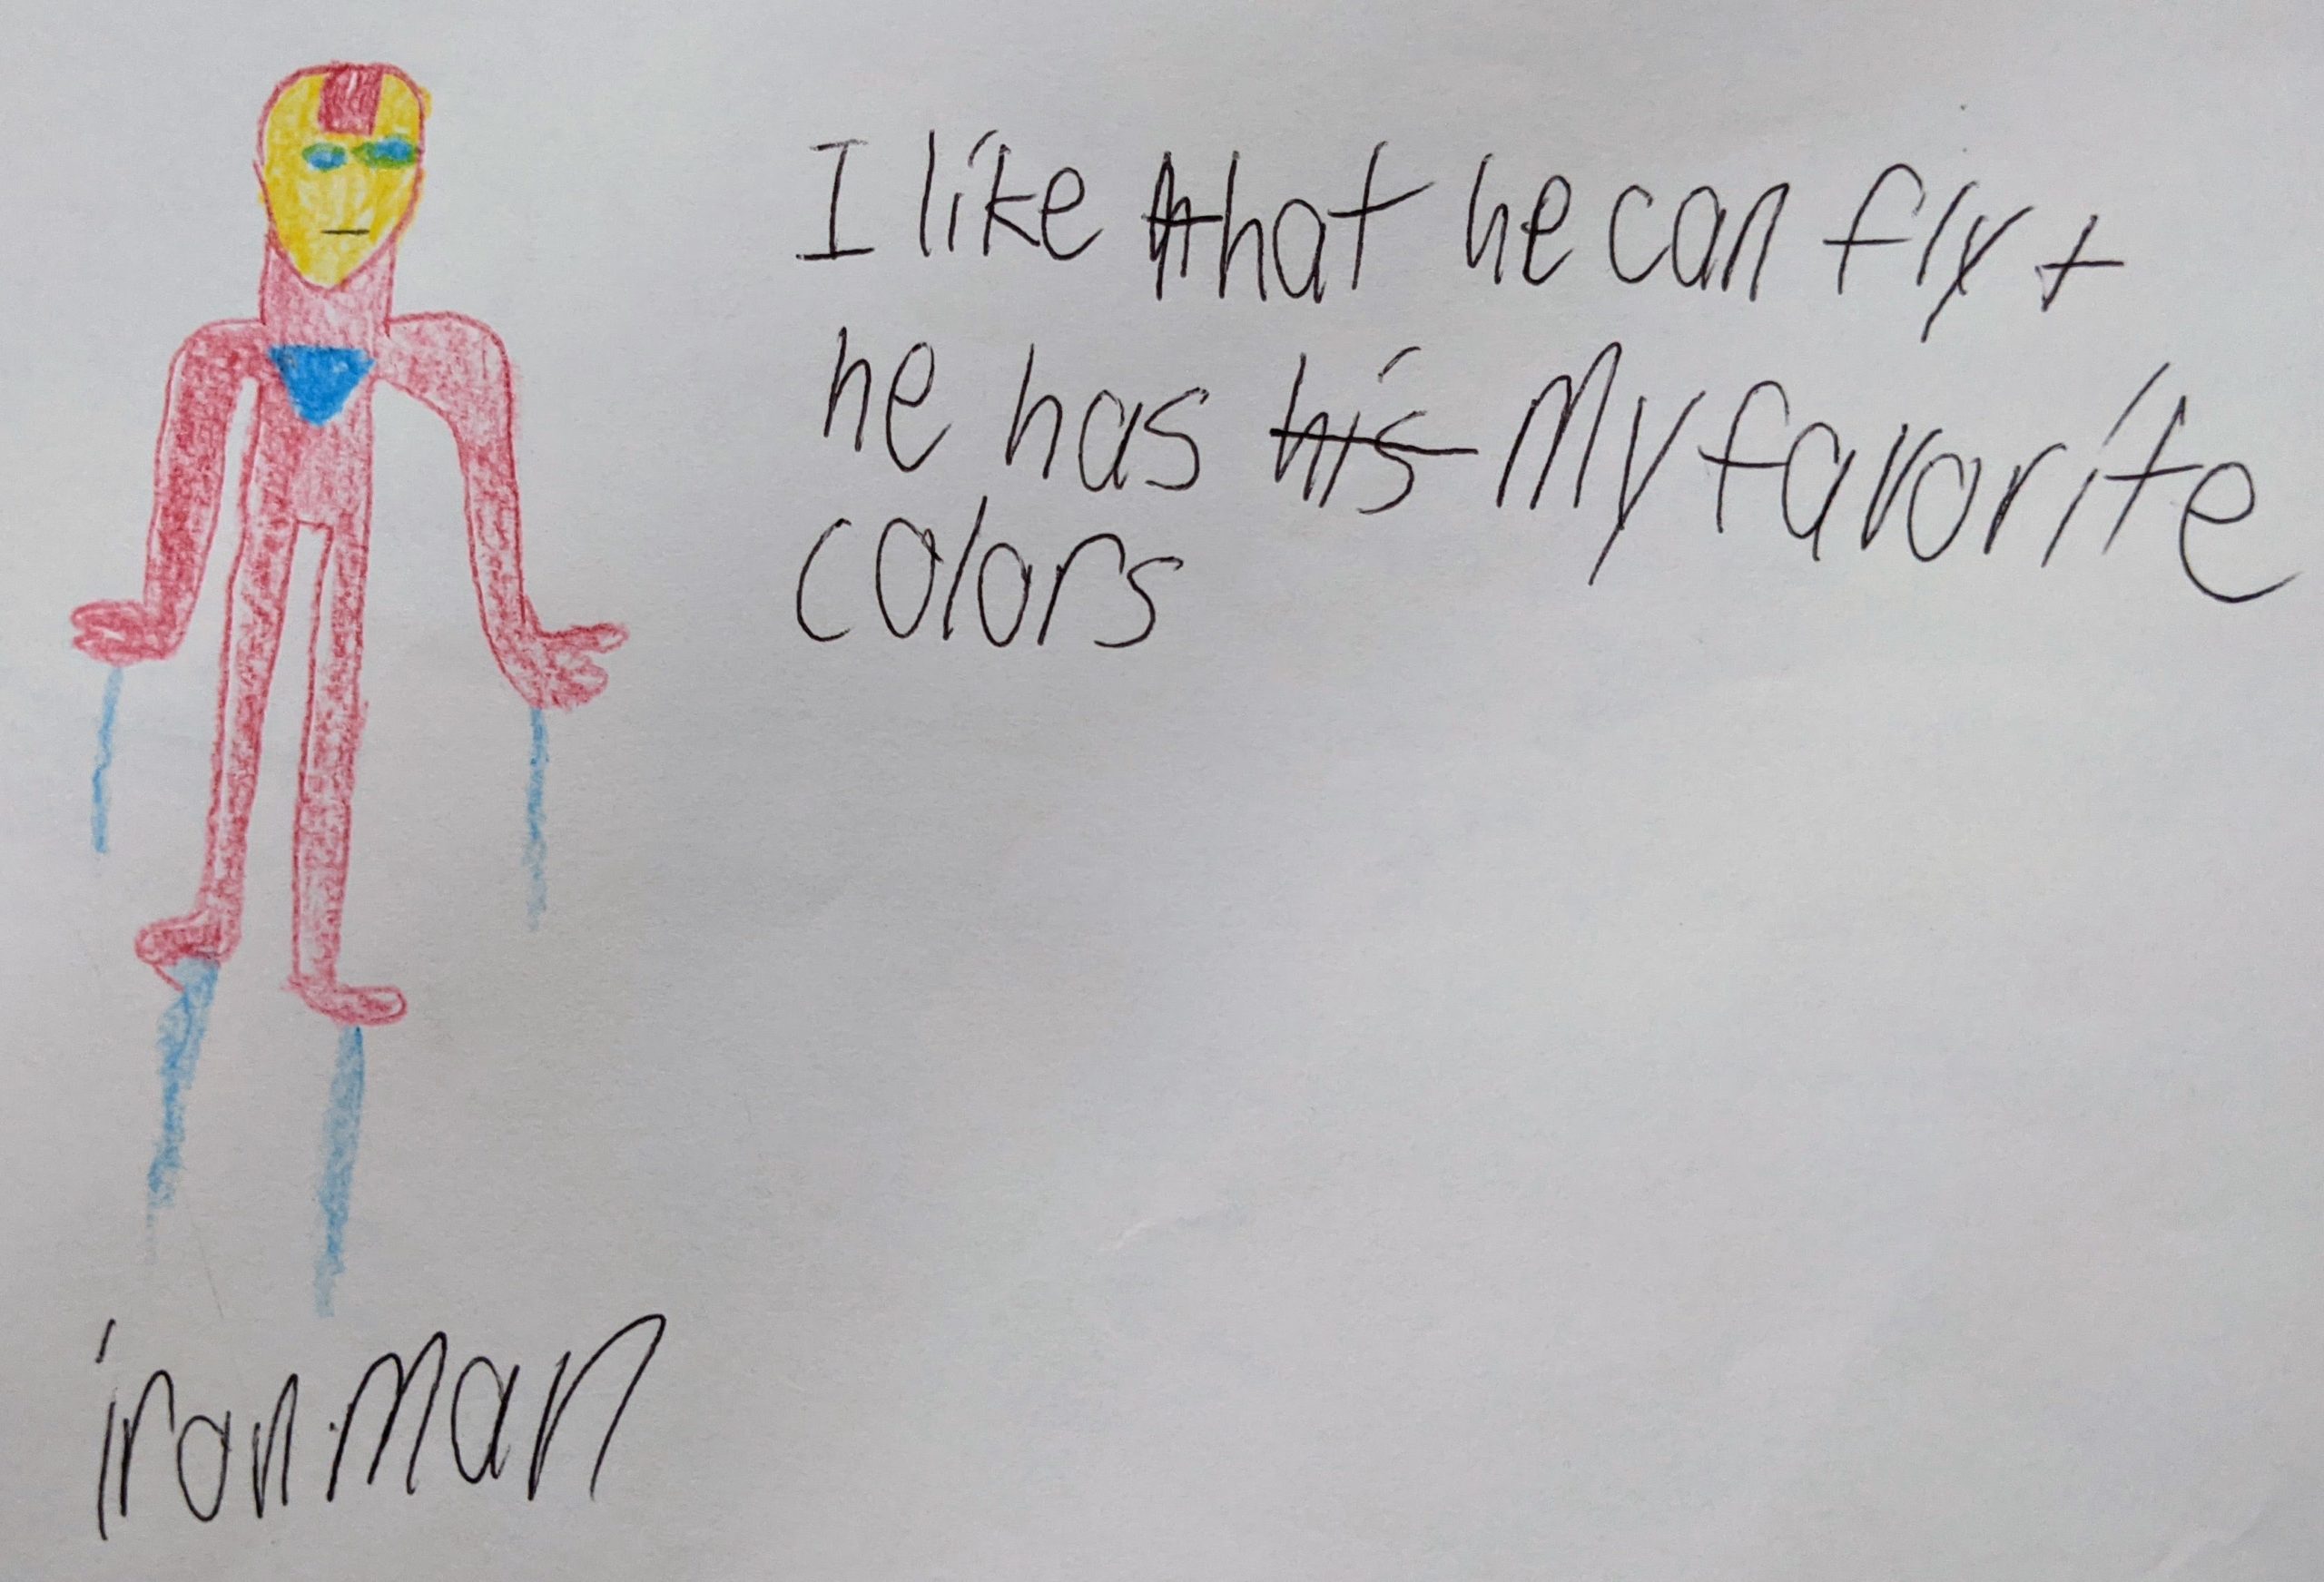 I like that he can fly +
he has his my favorite
colors
iron man